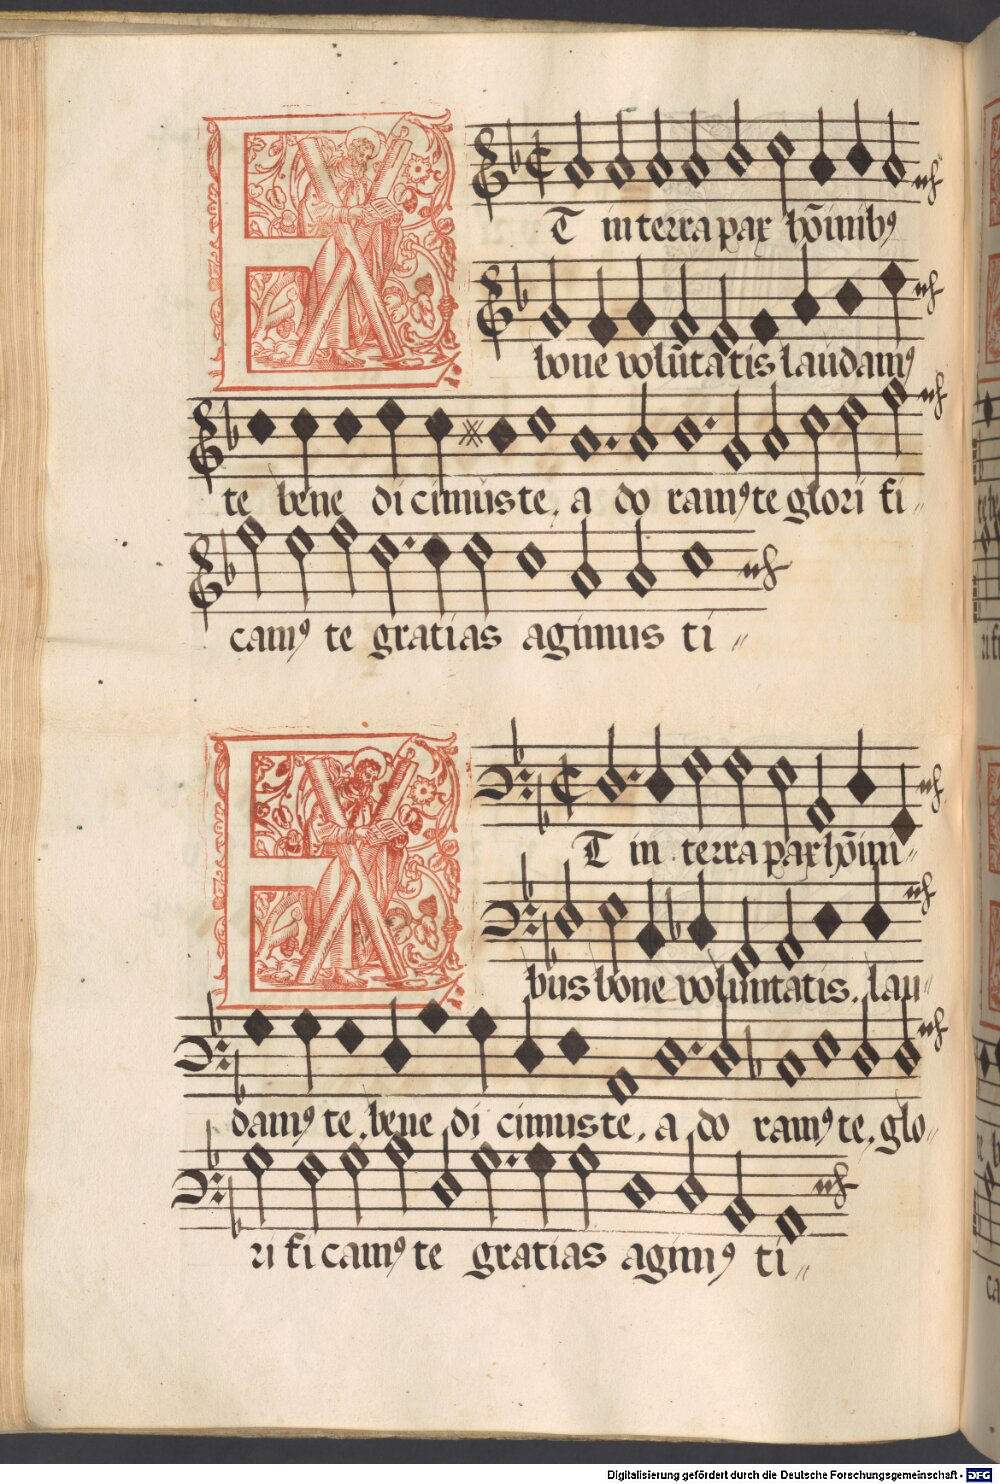 ET in terra pax hōinibꝰ
bone volūtatis laudamꝰ
te bene dicimus te. a do ramꝰ te glori fi〃
camꝰ te gratias agimus ti〃
ET in terra pax hōini〃
bus bone voluntatis. lau〃
damꝰ te. bene di cimus te. a do ramꝰ te. glo〃
ri fi camꝰ te gratias agimꝰ ti〃
Digitalisierung gefördert durch die Deutsche Forschungsgemeinschaft - DFG